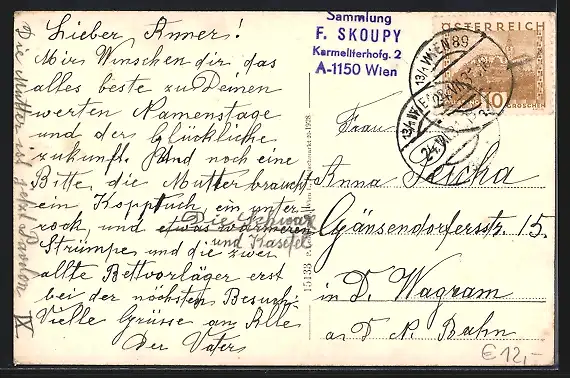 Lieber Anner!
Wir Winschen dir das
alles beste zu Deinen
werten Namenstage
und der Glückliche
zukunft. Und noch eine
Bitte, die Mutter braucht
ein Kopptuch, ein unter
rock, und etwas wärmeren
Die schwarz
und Kasefel
Strümpe und die zwei
allte Bettvorläger erst
bei der nöchsten Besuch.
Vielle Grüsse an Alle
Der Vater
Die Mutter ist jetzt
IX
Sammlung
F. SKOUPY
Karmeliterhofg. 2
A-1150 Wien
ÖSTERREICH
10
GROSCHEN
13/1 WIEN 89
13/1 WIEN
24.VII.3
15133
Frau
Anna Peicha
Gänsendorferstr. 15.
in D. Wagram
an D N. Bahn
€ 12,-